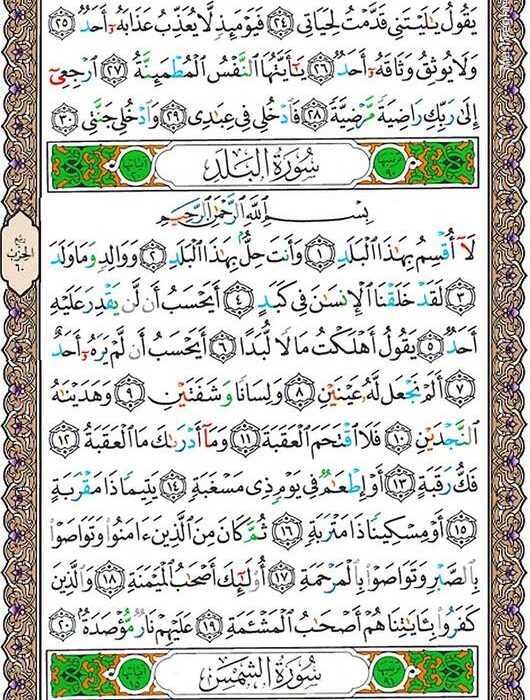 يَقُولُ يَـٰلَيْتَنِى قَدَّمْتُ لِحَيَاتِى ٢٤ فَيَوْمَئِذٍ لَّا يُعَذِّبُ عَذَابَهُۥٓ أَحَدٌ ٢٥
وَلَا يُوثِقُ وَثَاقَهُۥٓ أَحَدٌ ٢٦ يَـٰٓأَيَّتُهَا ٱلنَّفْسُ ٱلْمُطْمَئِنَّةُ ٢٧ ٱرْجِعِىٓ
إِلَىٰ رَبِّكِ رَاضِيَةً مَّرْضِيَّةً ٢٨ فَٱدْخُلِى فِى عِبَـٰدِى ٢٩ وَٱدْخُلِى جَنَّتِى ٣٠
سُورَةُ البَلَدِ
بِسْمِ ٱللَّهِ ٱلرَّحْمَـٰنِ ٱلرَّحِيمِ
لَآ أُقْسِمُ بِهَـٰذَا ٱلْبَلَدِ ١ وَأَنتَ حِلٌّۢ بِهَـٰذَا ٱلْبَلَدِ ٢ وَوَالِدٍ وَمَا وَلَدَ
٣ لَقَدْ خَلَقْنَا ٱلْإِنسَـٰنَ فِى كَبَدٍ ٤ أَيَحْسَبُ أَن لَّن يَقْدِرَ عَلَيْهِ
أَحَدٌ ٥ يَقُولُ أَهْلَكْتُ مَالًا لُّبَدًا ٦ أَيَحْسَبُ أَن لَّمْ يَرَهُۥٓ أَحَدٌ
٧ أَلَمْ نَجْعَل لَّهُۥ عَيْنَيْنِ ٨ وَلِسَانًا وَشَفَتَيْنِ ٩ وَهَدَيْنَـٰهُ
ٱلنَّجْدَيْنِ ١٠ فَلَا ٱقْتَحَمَ ٱلْعَقَبَةَ ١١ وَمَآ أَدْرَىٰكَ مَا ٱلْعَقَبَةُ ١٢
فَكُّ رَقَبَةٍ ١٣ أَوْ إِطْعَـٰمٌ فِى يَوْمٍ ذِى مَسْغَبَةٍ ١٤ يَتِيمًا ذَا مَقْرَبَةٍ
١٥ أَوْ مِسْكِينًا ذَا مَتْرَبَةٍ ١٦ ثُمَّ كَانَ مِنَ ٱلَّذِينَ ءَامَنُوا۟ وَتَوَاصَوْا۟
بِٱلصَّبْرِ وَتَوَاصَوْا۟ بِٱلْمَرْحَمَةِ ١٧ أُو۟لَـٰٓئِكَ أَصْحَـٰبُ ٱلْمَيْمَنَةِ ١٨ وَٱلَّذِينَ
كَفَرُوا۟ بِـَٔايَـٰتِنَا هُمْ أَصْحَـٰبُ ٱلْمَشْـَٔمَةِ ١٩ عَلَيْهِمْ نَارٌ مُّؤْصَدَةٌۢ ٢٠
سُورَةُ الشَّمْسِ
ربع
الحزب
٦٠